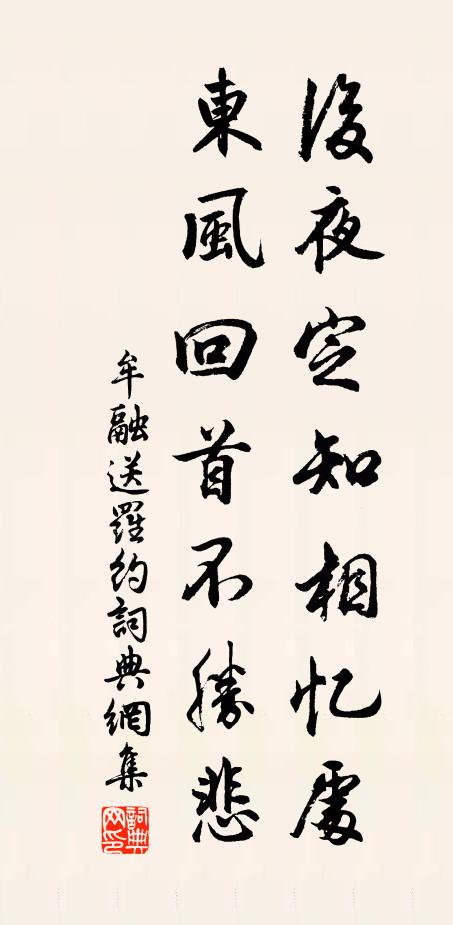 後夜定知相忆處
東風回首不勝悲
牟融送羅約詞典網集
詞典網印